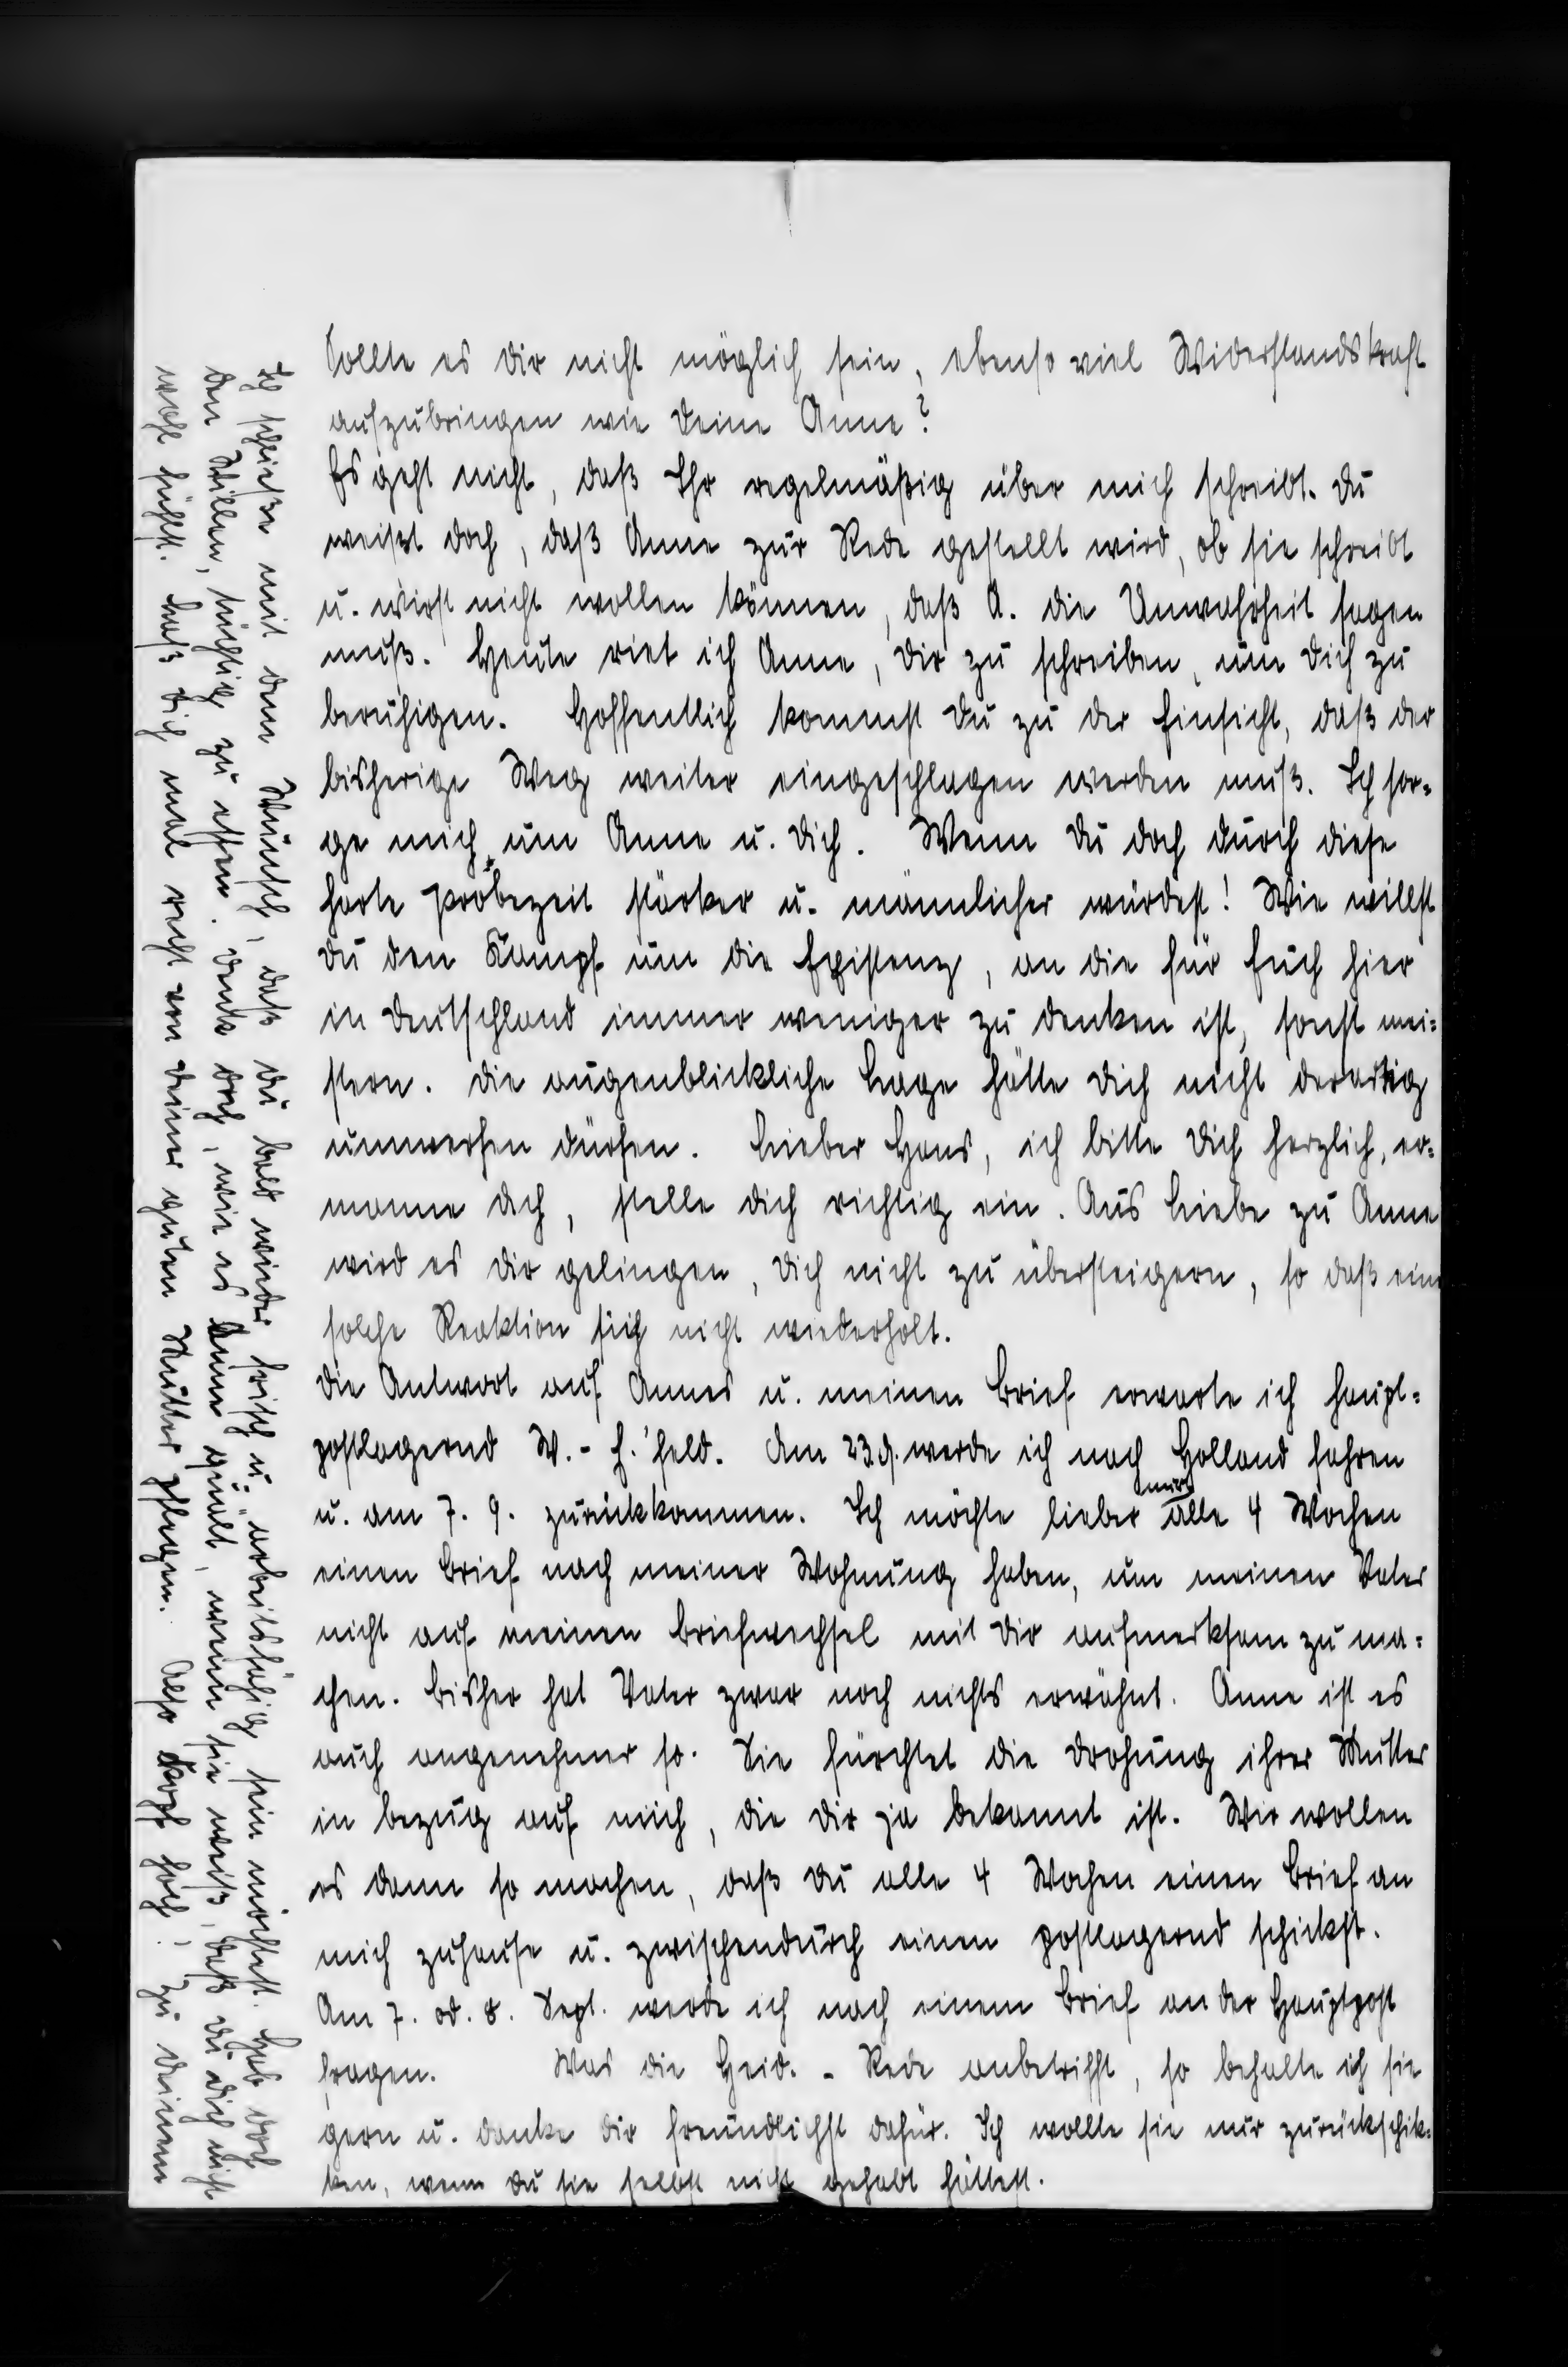 Sollte es Dir nicht möglich sein, ebenso viel Widerstandskraft
aufzubringen wie Deine Anne?
Es geht nicht, daß Ihr regelmäßig über mich schreibt. Du
weißt doch, daß Anne zur Rede gestellt wird, ob sie schreibt
u. wirst nicht wollen können, daß A. die Unwahrheit sagen
muß. Heute riet ich Anne, Dir zu schreiben, um Dich zu
beruhigen. Hoffentlich kommst Du zu der Einsicht, daß der
bisherige Weg weiter eingeschlagen werden muß. Ich sor-
ge mich um Anne u. Dich. Wenn Du doch durch diese
harte Probezeit stärker u. männlicher würdest! Wie willst
Du den Kampf um die Existenz, an die für Euch hier
in Deutschland immer weniger zu denken ist, sonst mei-
stern. Die augenblickliche Lage hätte Dich nicht derartig
umwerfen dürfen. Lieber Hans, ich bitte Dich herzlich, er-
manne Dich, stelle Dich richtig ein. Aus Liebe zu Anne
wird es Dir gelingen, Dich nicht zu übersteigern, so daß eine
solche Reaktion sich nicht wiederholt.
Die Antwort auf Annes u. meinen Brief erwarte ich haupt-
postlagernd W.-E.'feld. Am 23.9. werde ich nach Holland fahren
u. am 7. 9. zurückkommen. Ich möchte lieber nur alle 4 Wochen
einen Brief nach meiner Wohnung haben, um meinen Vater
nicht auf meinen Briefwechsel mit Dir aufmerksam zu ma-
chen. Bisher hat Vater zwar noch nichts erwähnt. Anne ist es
auch angenehmer so. Sie fürchtet die Drohung ihrer Mutter
in bezug auf mich, die Dir ja bekannt ist. Wir wollen
es dann so machen, daß Du alle 4 Wochen einen Brief an
mich zuhause u. zwischendurch einen postlagernd schickst.
Am 7. od. 8. Sept. werde ich nach einem Brief an der Hauptpost
fragen. Was die Heid.-Rede anbetrifft, so behalte ich sie
gern u. danke Dir freundlichst dafür. Ich wollte sie nur zurückschik-
ken, wenn Du sie selbst nicht gehabt hättest.
Ich schließe mit dem Wunsch, daß Du bald wieder frisch u. arbeitsfähig sein möchtest. Hab doch
den Willen, tüchtig zu essen. Denk doch, wie es Anne quält, wenn sie weiß, daß Du Dich nicht
wohl fühlst. Laß Dich mal recht von Deiner guten Mutter pflegen. Also Kopf hoch, zu Deinem